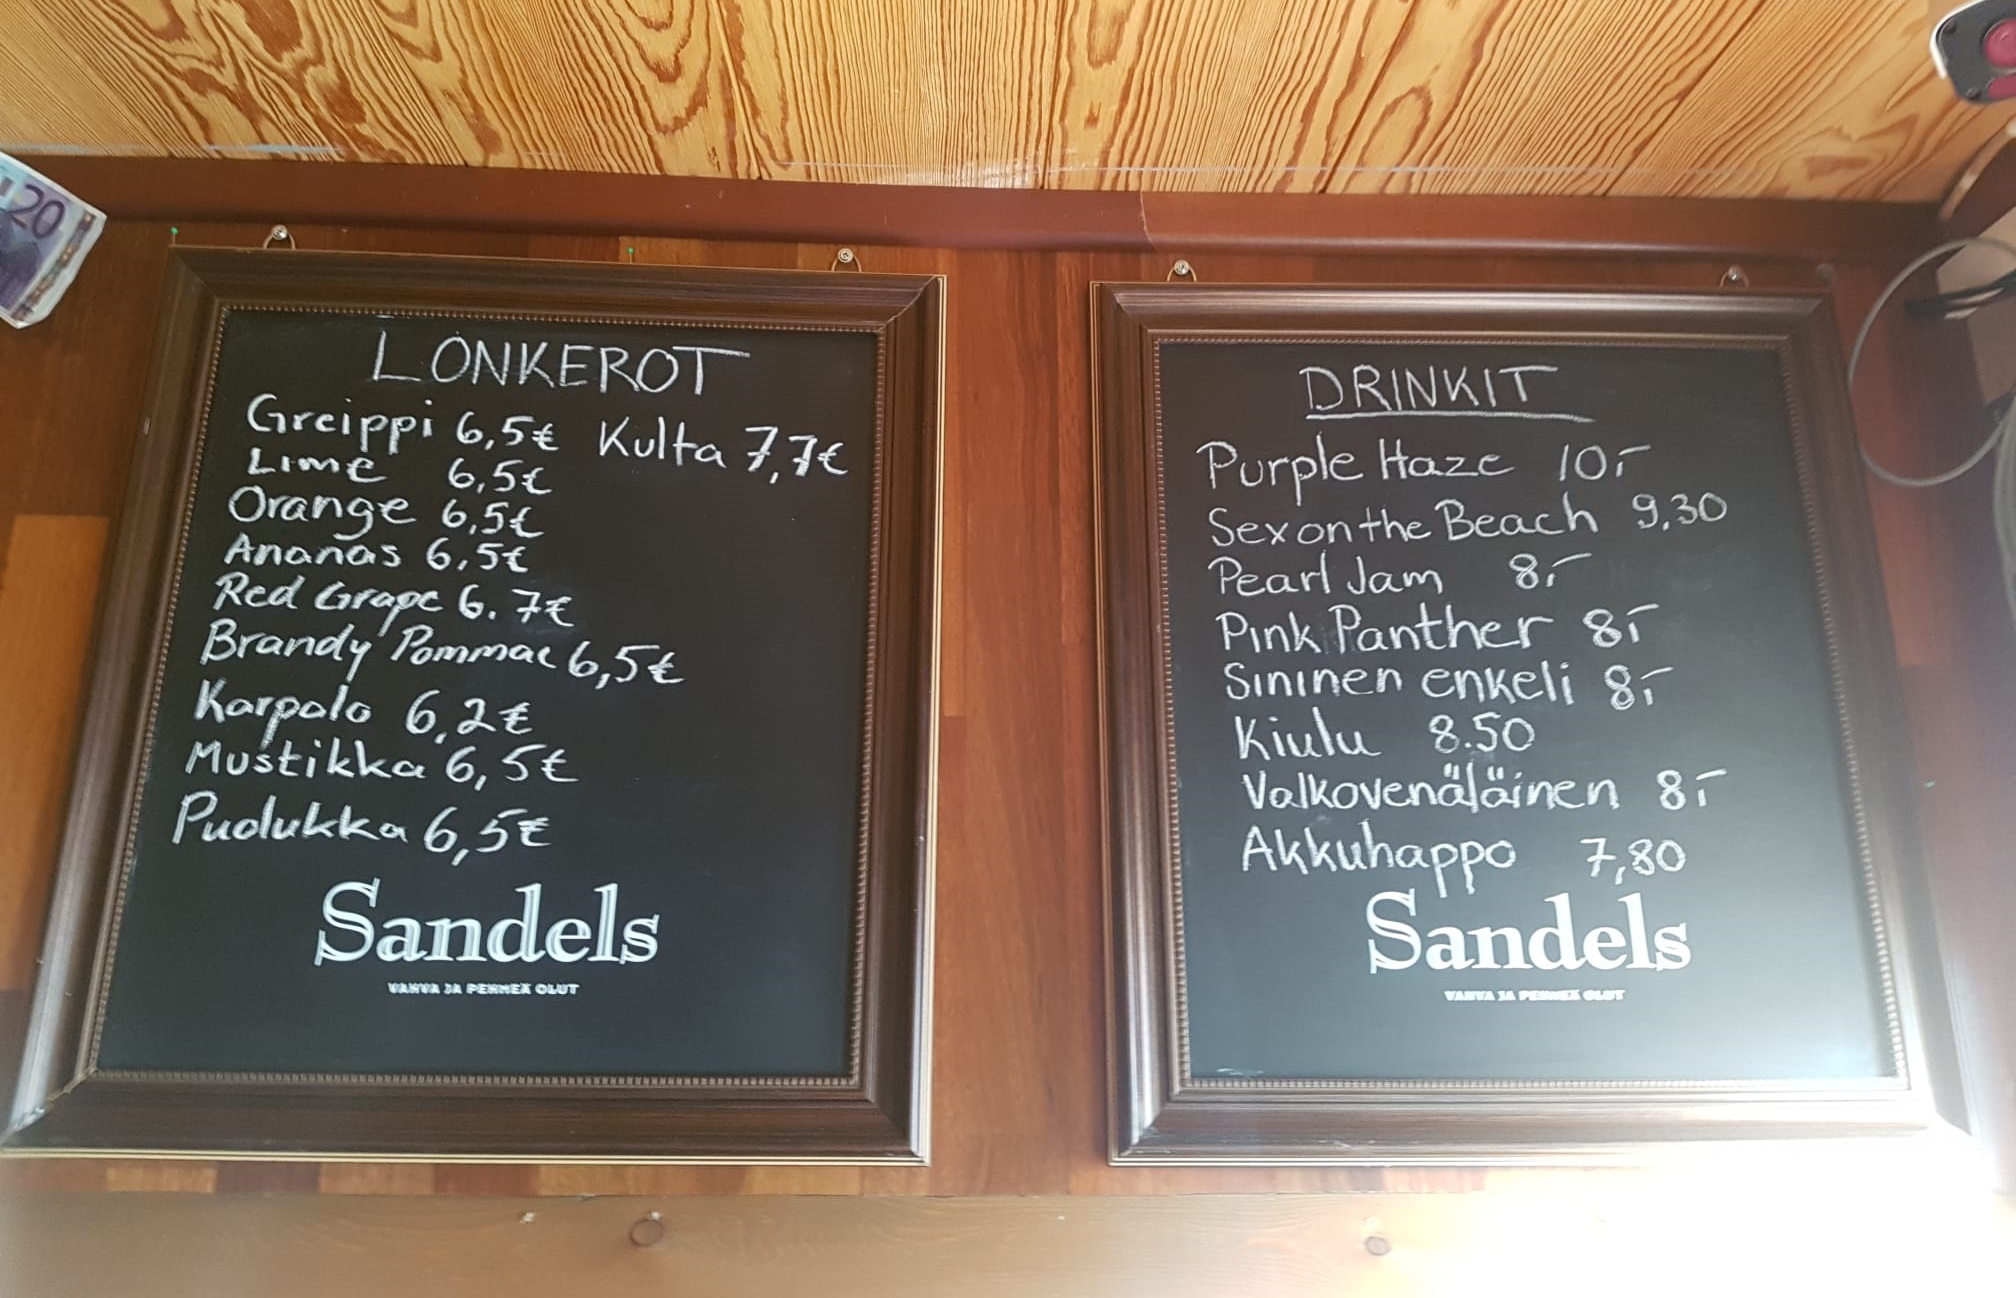 20
LONKEROT
Greippi 6,5€ Kulta 7,7€
Lime 6,5€
Orange 6,5€
Ananas 6,5€
Red Grape 6.7€
Brandy Pommac 6,5€
Karpalo 6,2€
Mustikka 6,5€
Puolukka 6,5€
Sandels
VAHVA JA PEHMEÄ OLUT
DRINKIT
Purple Haze 10,-
Sex on the Beach 9,30
Pearl Jam 8,-
Pink Panther 8,-
Sininen enkeli 8,-
Kiulu 8.50
Valkovenäläinen 8,-
Akkuhappo 7,80
Sandels
VAHVA JA PEHMEÄ OLUT